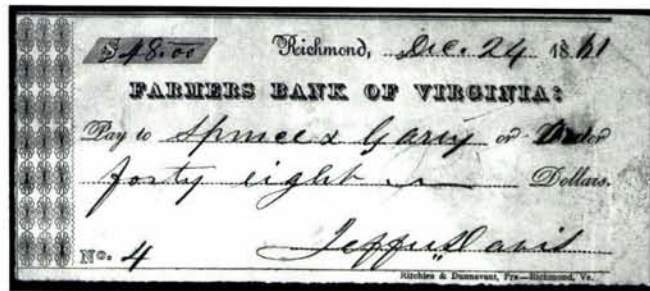 $48.00 Richmond, Dec. 24 1861
FARMERS BANK OF VIRGINIA:
Pay to Spence & Gary or Order
forty eight Dollars.
No. 4 Jeffn Davis
Ritchies & Dunnavant, Prs—Richmond, Va.